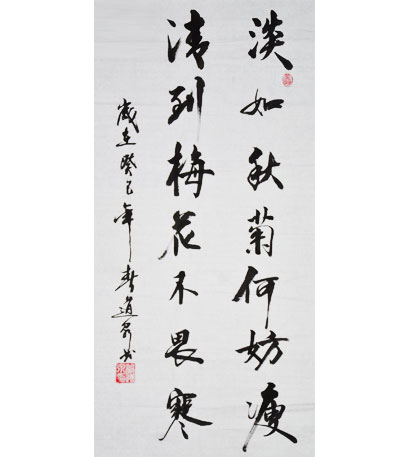 淡如秋菊何妨瘦
清到梅花不畏寒
歲在癸巳年道书